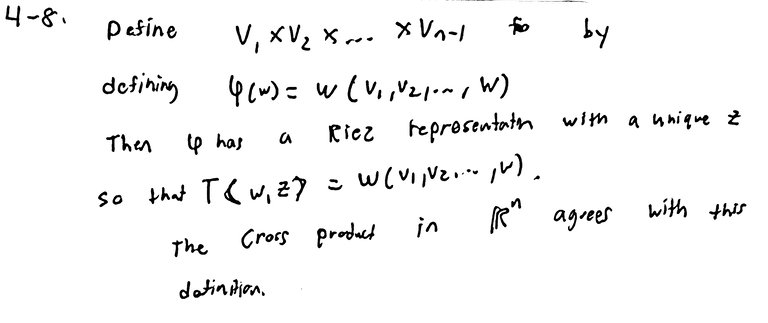 4-8. Define V₁ × V₂ × ... × Vₙ₋₁ by
defining φ(w) = w(v₁, v₂, ..., w)
Then φ has a Riez representatn with a unique z
so that T⟨w, z⟩ = w(v₁, v₂, ..., w).
The Cross product in ℝⁿ agrees with this
definition.